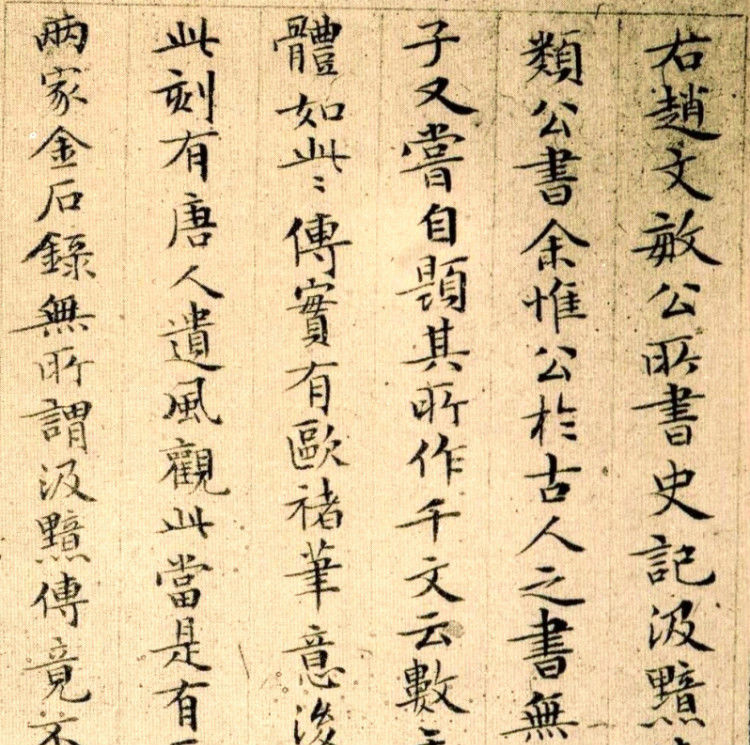 右趙文敏公所書史記汲黯
類公書余惟公於古人之書無
子又嘗自題其所作千文云數
體如此〻傳實有歐褚筆意後
此刻有唐人遺風觀此當是有
兩家金石錄無所謂汲黯傳竟不